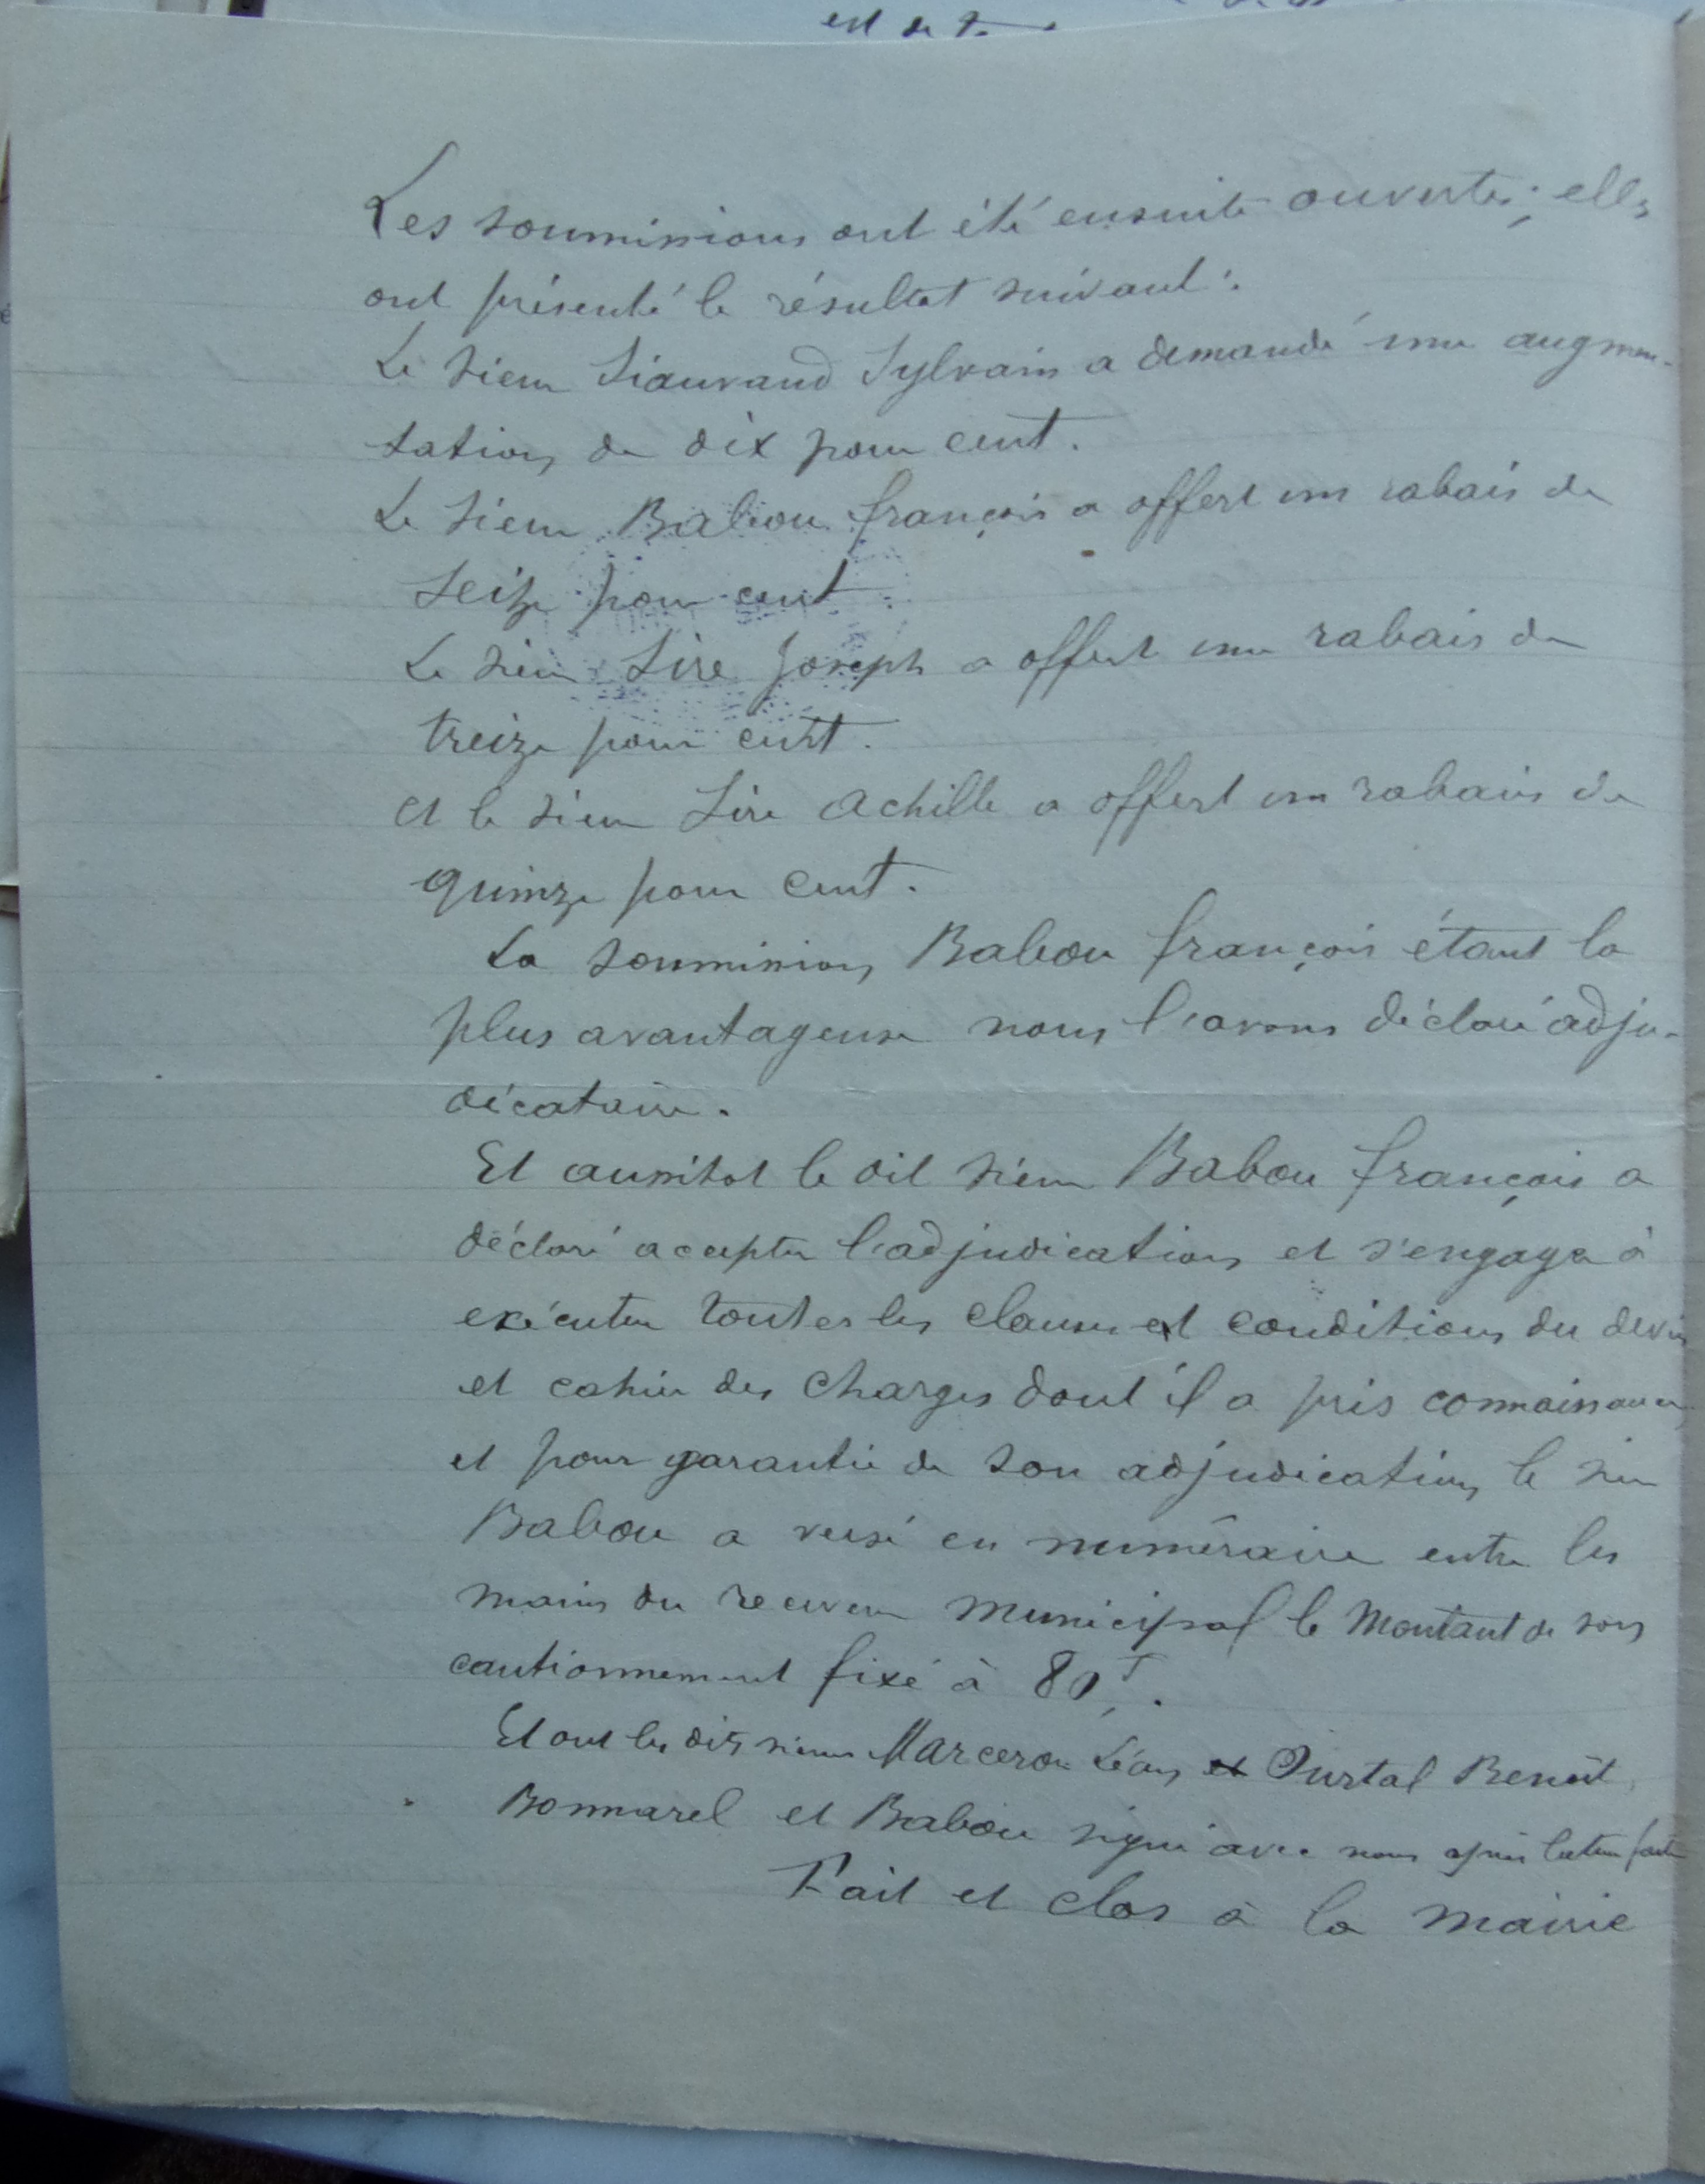 Les soumissions ont été ensuite ouvertes; elles
ont présenté le résultat suivant:
Le sieur Siauvaud Sylvain a demandé une augmen-
tation de dix pour cent.
Le sieur Babou françois a offert un rabais de
seize pour cent.
Le sieur Sire Joseph a offert un rabais de
treize pour cent.
et le sieur Sire Achille a offert un rabais de
quinze pour cent.
La soumission Babou françois étant la
plus avantageuse nous l'avons déclaré adju-
dicataire.
Et aussitot le dit sieur Babou françois a
déclaré accepter l'adjudication et s'engage à
exécuter toutes les clauses et conditions du devis
et cahier des charges dont il a pris connaissance
et pour garantie de son adjudication le sieur
Babou a versé en numéraire entre les
mains du receveur municipal le montant de son
cautionnement fixé à 80f.
Et ont les dits sieurs Marcerou Léon et Purtal Benoît,
Bonnarel et Babou signé avec nous après lecture faite
Fait et clos à la mairie